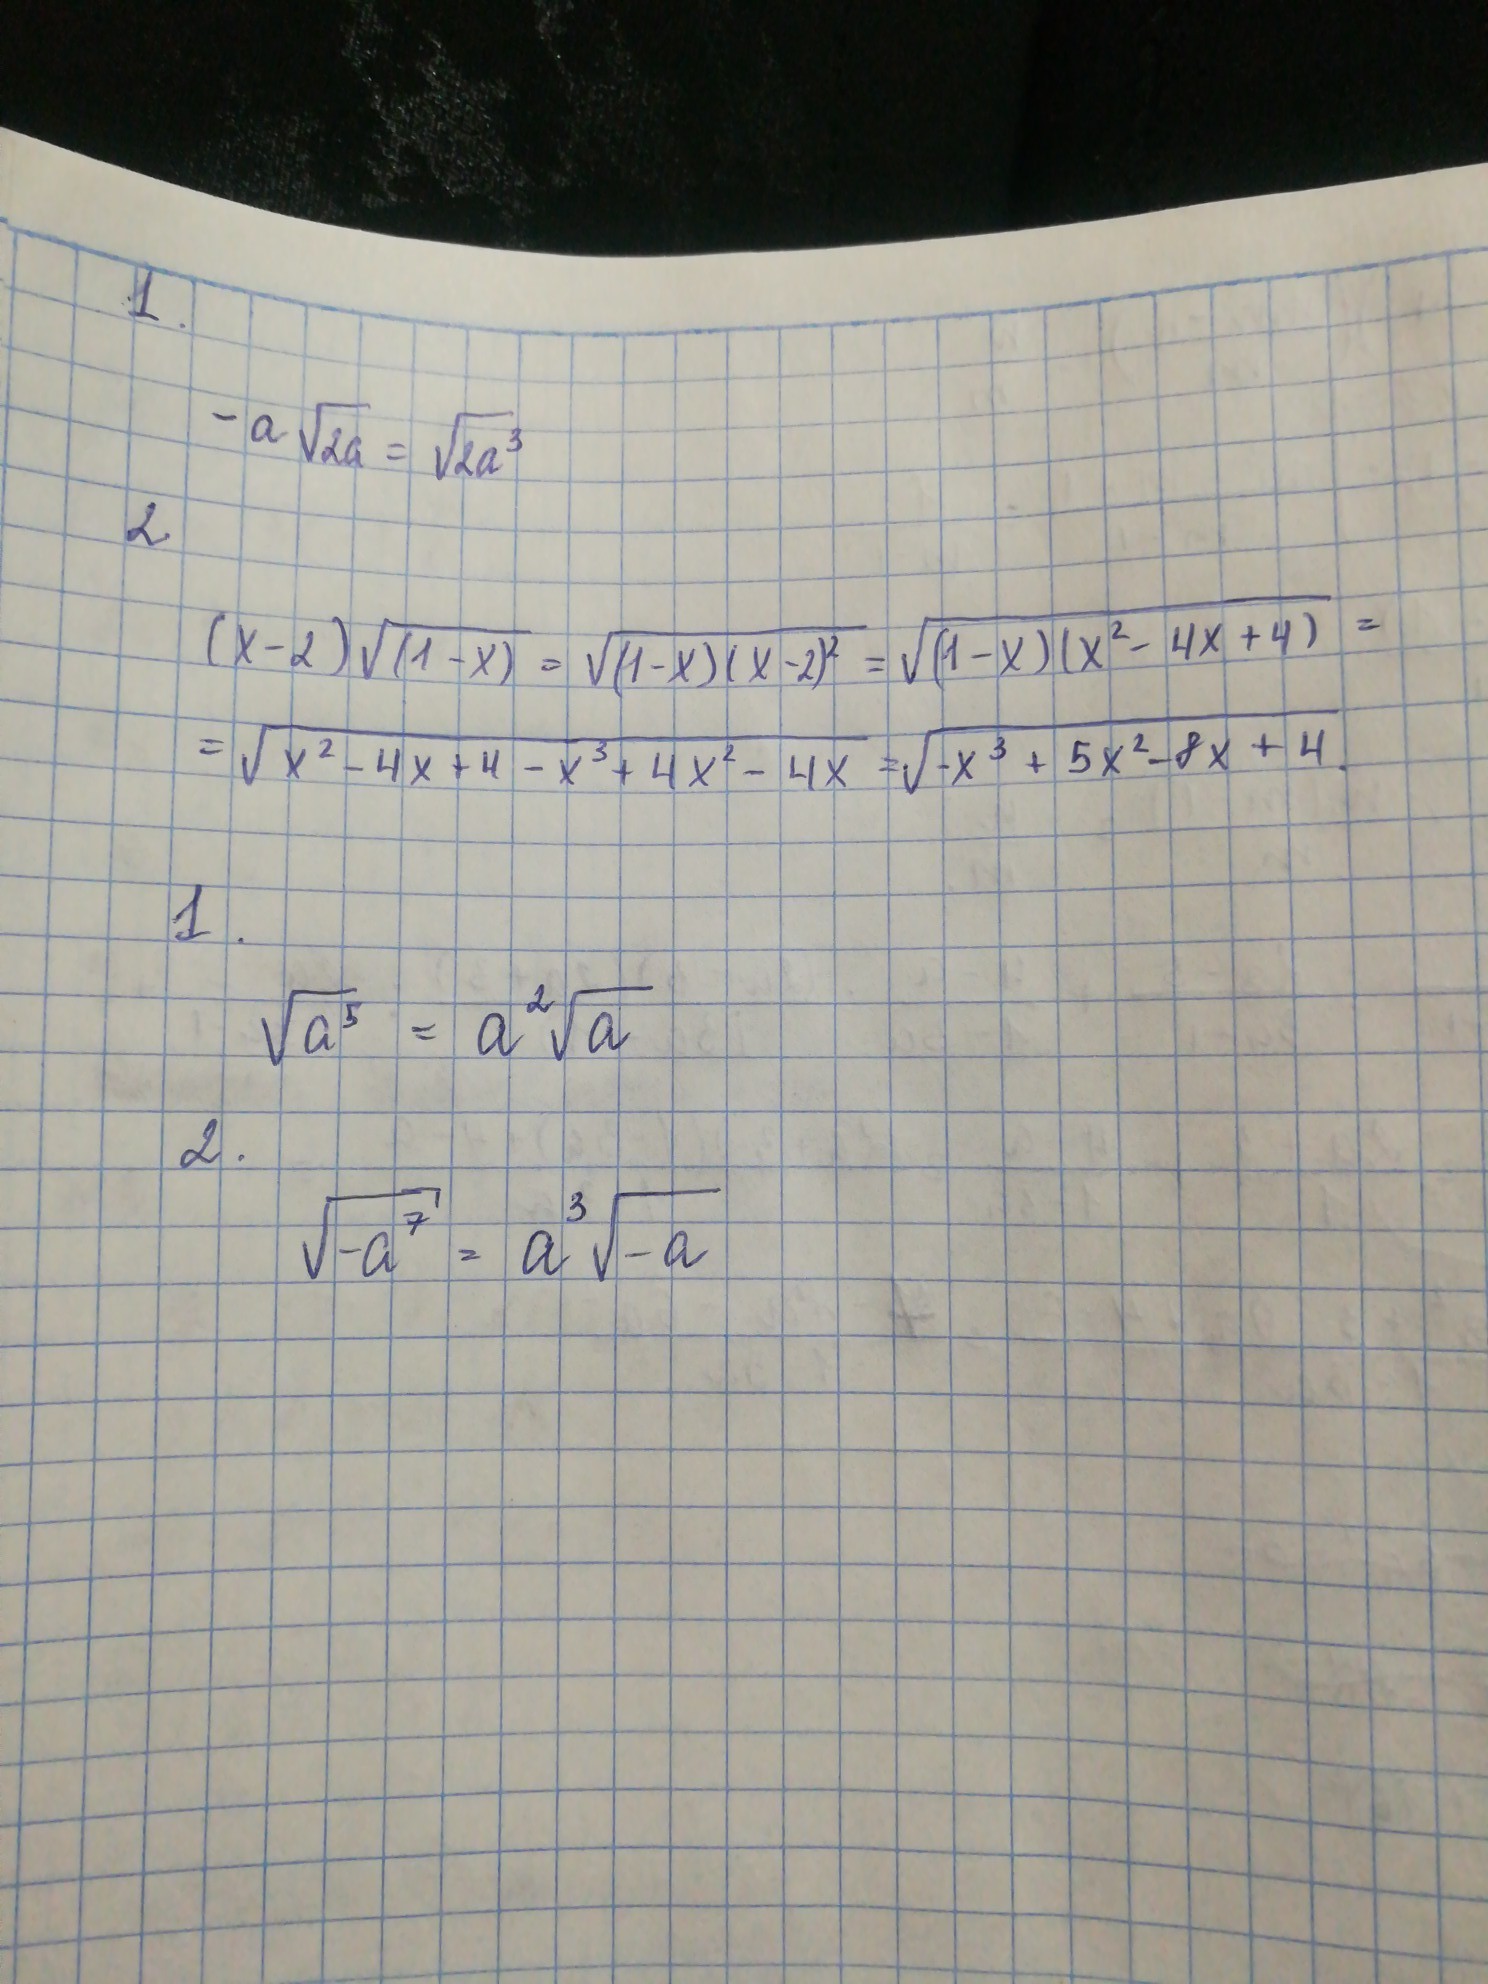 1.
-a √2a = √2a³
2.
(x-2)√(1-x) = √(1-x)(x-2)² = √(1-x)(x² - 4x + 4) =
= √x² - 4x + 4 - x³ + 4x² - 4x = √-x³ + 5x² - 8x + 4.
1.
√a⁵ = a²√a
2.
√-a⁷ = a³√-a